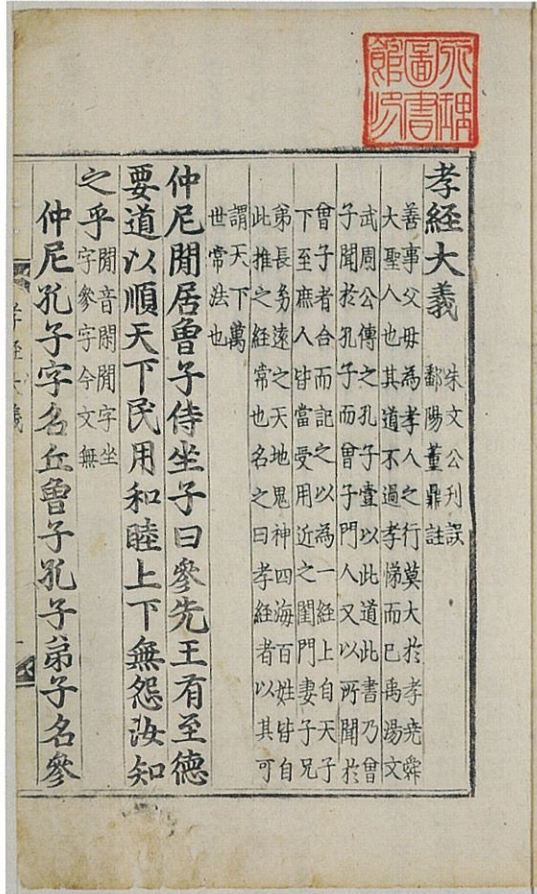 孝経大義
朱文公刊誤
鄱陽董鼎註
善事父毋為孝人之行莫大於孝堯舜
大聖人也其道不過孝悌而已禹湯文
武周公傳之孔子壹以此道此書乃曾
子聞於孔子而曾子門人又以所聞於
曾子者合而記之以為一經上自天子
下至庶人皆當受用近之閨門妻子兄
弟長㓜遠之天地鬼神四海百姓皆自
此推之経常也名之曰孝経者以其可
謂天下萬
世常法也
仲尼閒居曾子侍坐子曰參先王有至德
要道以順天下民用和睦上下無怨汝知
之乎
閒音閑閒字坐
字參字今文無
仲尼孔子字名丘曾子孔子弟子名參
孝経大義
圖書
館